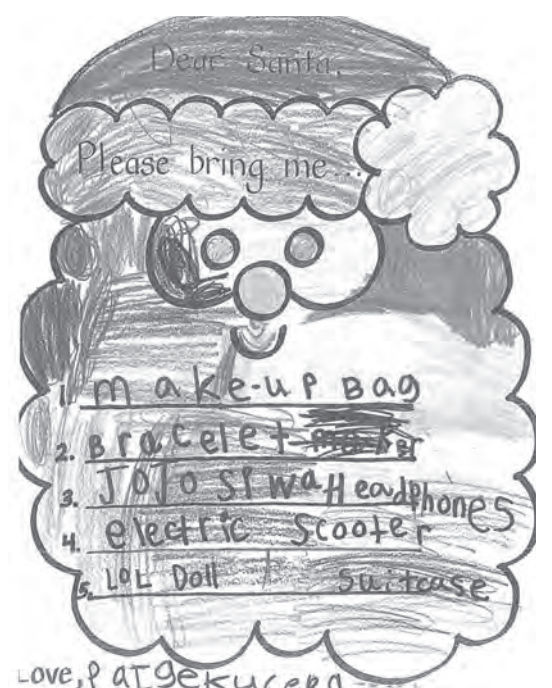 Dear Santa,
Please bring me...
1. make-up Bag
2. Bracelet
3. JoJo SiwaHeadphones
4. electric Scooter
5. LOL Doll Suitcase
Love,